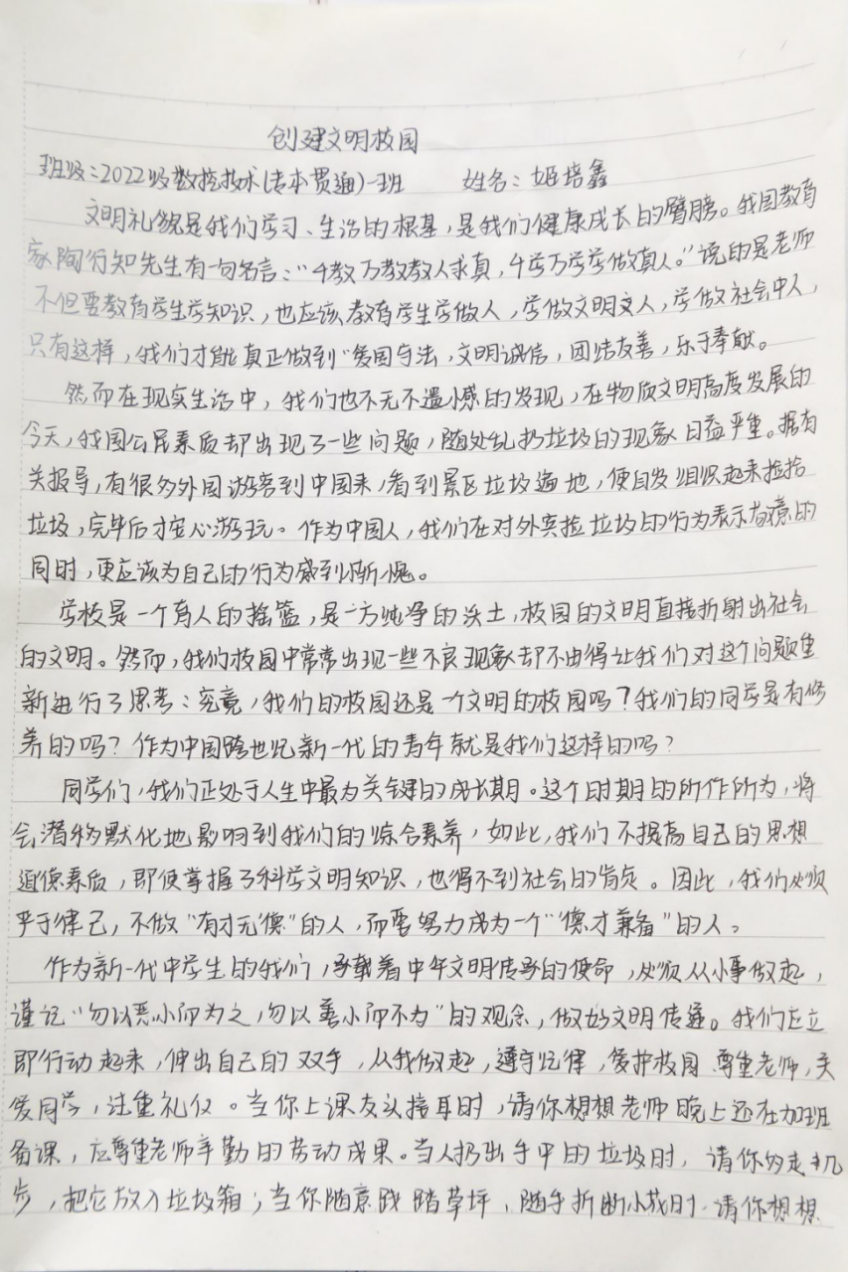 创建文明校园
班级：2022级数控技术(专本贯通)一班 姓名：姬培鑫
文明礼貌是我们学习、生活的根基，是我们健康成长的臂膀。我国教育
家陶行知先生有一句名言："千教万教教人求真，千学万学学做真人。"说的是老师
不但要教育学生学知识，也应该教育学生学做人，学做文明文人，学做社会中人，
只有这样，我们才能真正做到"爱国守法，文明诚信，团结友善，乐于奉献。
然而在现实生活中，我们也不无不遗憾的发现，在物质文明高度发展的
今天，我国公民素质却出现了一些问题，随处乱扔垃圾的现象日益严重。据有
关报导，有很多外国游客到中国来，看到景区垃圾遍地，便自发组织起来捡拾
垃圾，完毕后才安心游玩。作为中国人，我们在对外宾捡垃圾的行为表示敬意的
同时，更应该为自己的行为感到惭愧。
学校是一个育人的摇篮，是一方纯净的沃土，校园的文明直接折射出社会
的文明。然而，我们校园中常常出现一些不良现象却不由得让我们对这个问题重
新进行了思考：究竟，我们的校园还是一个文明的校园吗？我们的同学是有修
养的吗？作为中国跨世纪新一代的青年就是我们这样的吗？
同学们，我们正处于人生中最为关键的成长期。这个时期的所作所为，将
会潜移默化地影响到我们的综合素养，如此，我们不提高自己的思想
道德素质，即使掌握了科学文明知识，也得不到社会的肯定。因此，我们必须
严于律己，不做"有才无德"的人，而要努力成为一个"德才兼备"的人。
作为新一代中学生的我们，承载着中华文明传承的使命，必须从小事做起，
谨记"勿以恶小而为之，勿以善小而不为"的观念，做好文明传递。我们应立
即行动起来，伸出自己的双手，从我做起，遵守纪律，爱护校园、尊重老师，关
爱同学，注重礼仪。当你上课交头接耳时，请你想想老师晚上还在加班
备课，应尊重老师辛勤的劳动成果。当人扔出手中的垃圾时，请你多走几
步，把它放入垃圾箱；当你随意践踏草坪、随手折断小枝时，请你想想